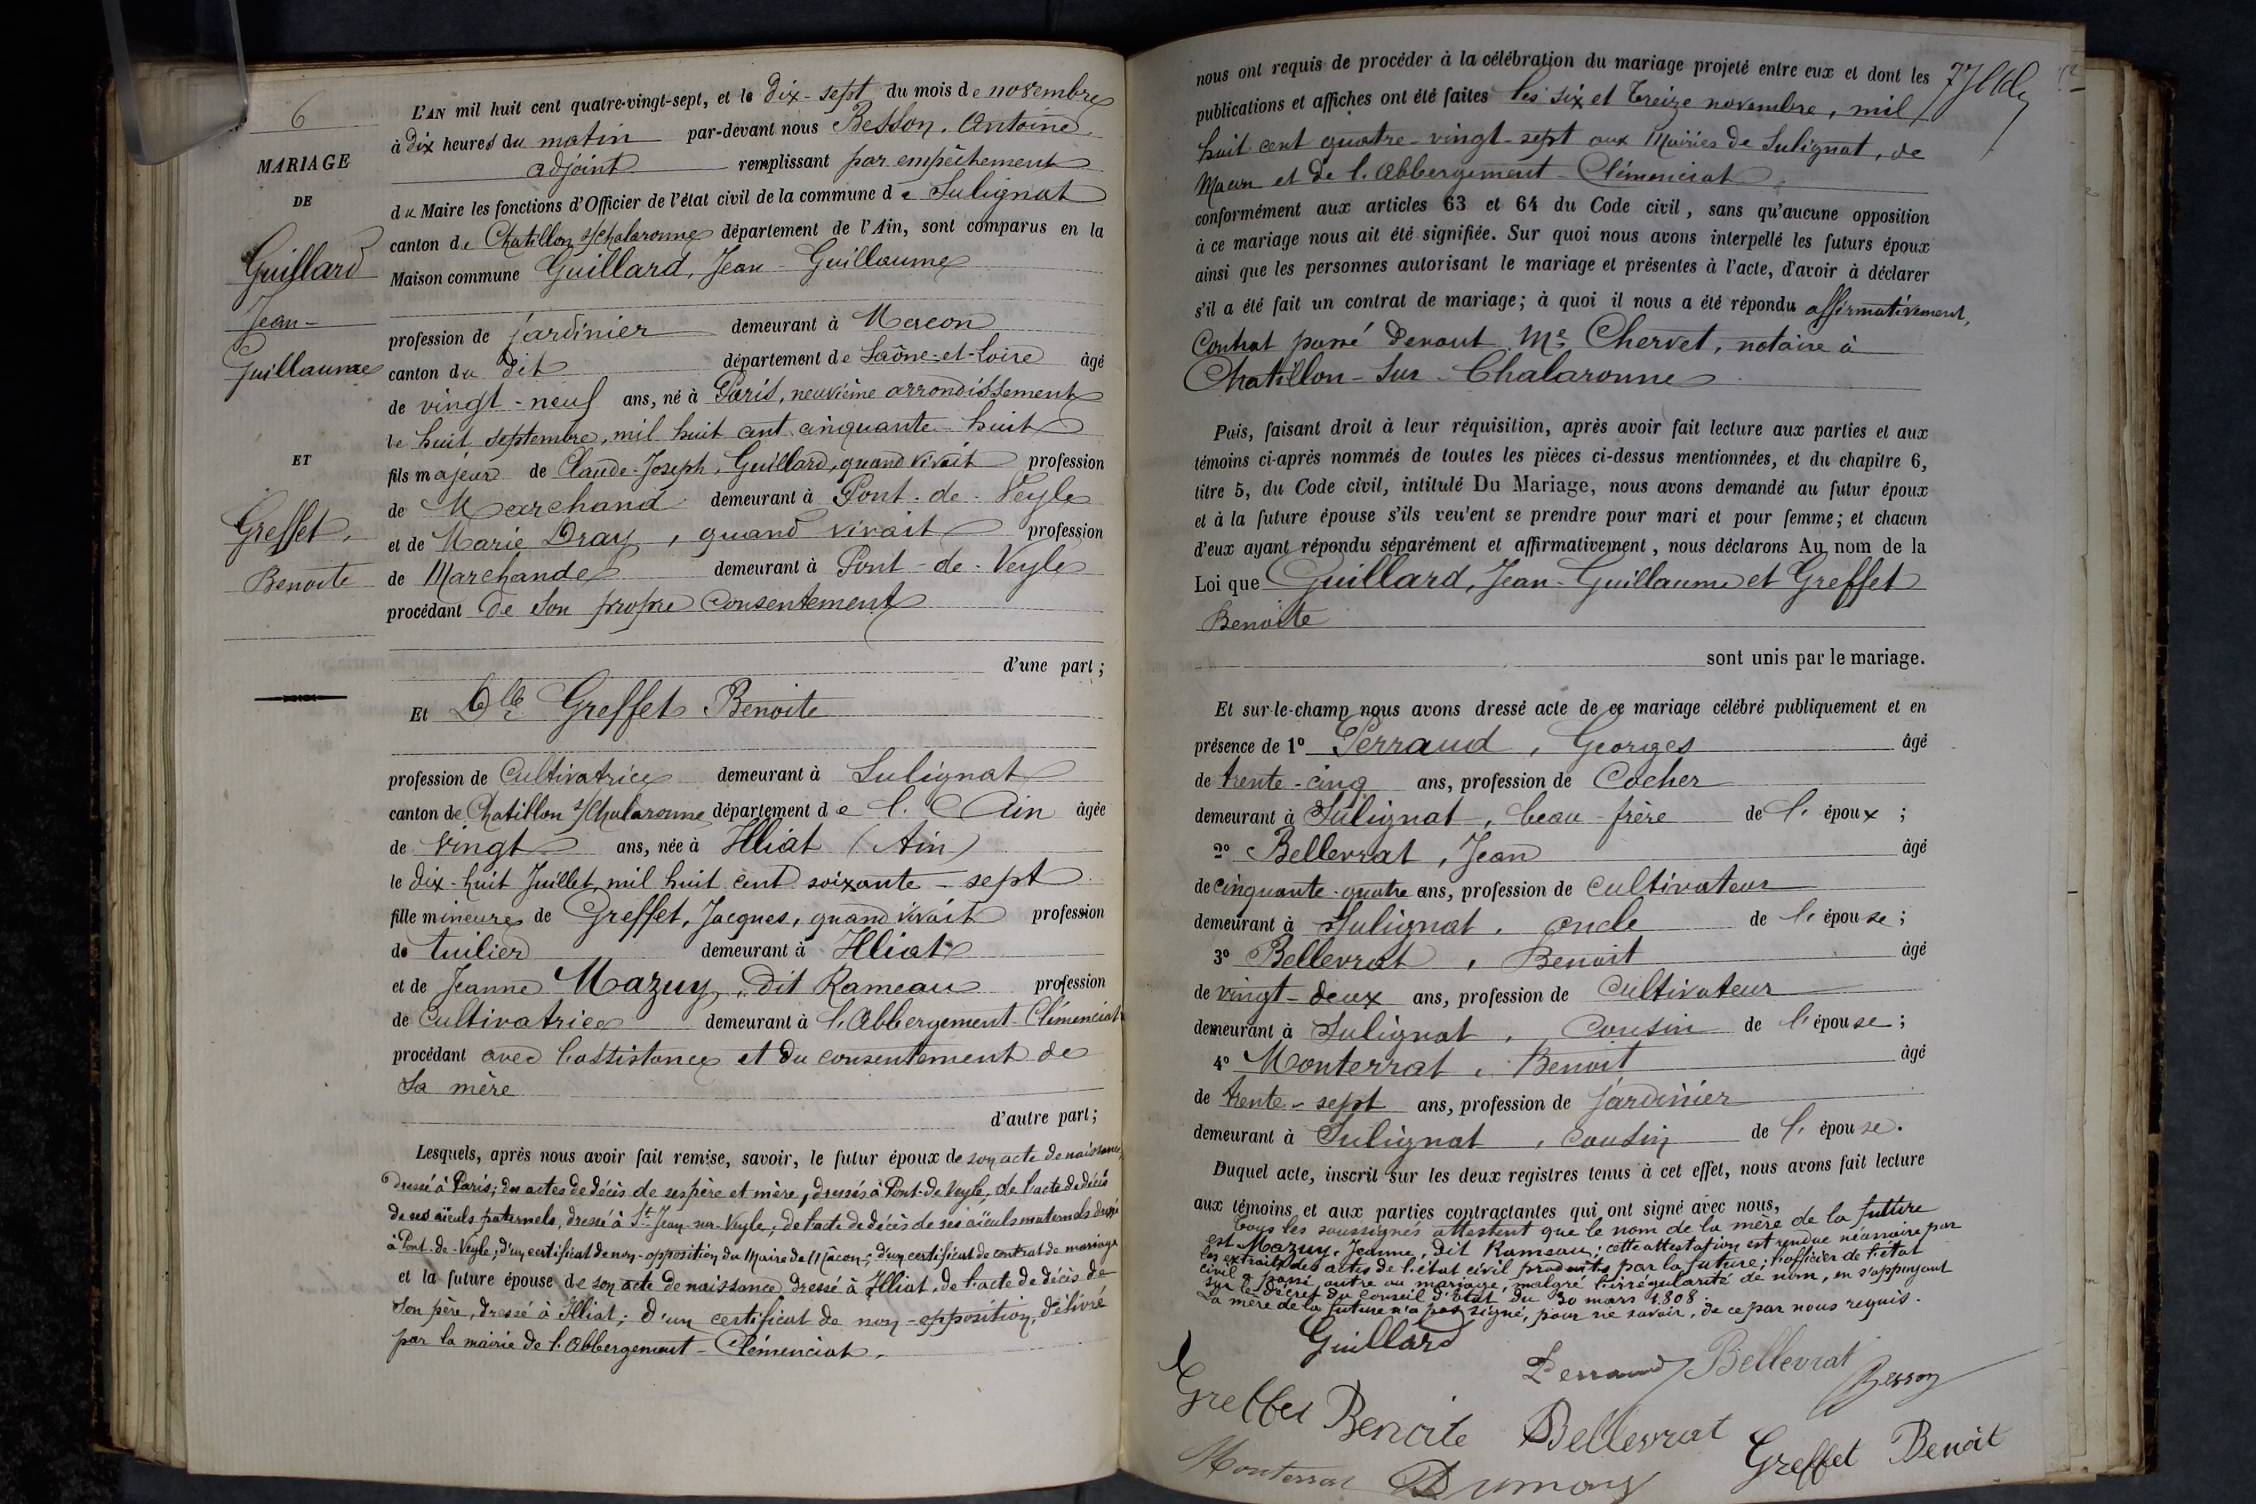 6
MARIAGE
DE
Guillard
Jean-
Guillaume
ET
Greffet,
Benoite
L'AN mil huit cent quatre-vingt-sept, et le dix-sept du mois de novembre
à dix heures du matin par-devant nous Besson, Antoine,
adjoint remplissant par empêchement
du Maire les fonctions d'Officier de l'état civil de la commune de Sulignat
canton de Chatillon s/Chalaronne département de l'Ain, sont comparus en la
Maison commune Guillard, Jean-Guillaume
profession de jardinier demeurant à Macon
canton du dit département de Saône-et-Loire âgé
de vingt-neuf ans, né à Paris, neuvième arrondissement
le huit septembre, mil huit cent cinquante-huit
fils majeur de Claude-Joseph, Guillard, quand vivait profession
de Marchand demeurant à Pont-de-Veyle
et de Marie Dray, quand vivait profession
de Marchande demeurant à Pont-de-Veyle
procédant de son propre consentement
d'une part;
Et Dlle Greffet Benoite
profession de Cultivatrice demeurant à Sulignat
canton de Chatillon s/Chalaronne département de l'Ain âgée
de vingt ans, née à Illiat (Ain)
le dix-huit Juillet mil huit cent soixante-sept
fille mineure de Greffet, Jacques, quand vivait profession
de tuilier demeurant à Illiat
et de Jeanne Mazuy, dit Rameau profession
de Cultivatrice demeurant à l'Abbergement-Clémenciat
procédant avec l'assistance et du consentement de
sa mère
d'autre part;
Lesquels, après nous avoir fait remise, savoir, le futur époux de son acte de naissance,
dressé à Paris; des actes de décès de ses père et mère, dressés à Pont-de-Veyle, de l'acte de décès
de ses aïeuls paternels, dressé à St-Jean-sur-Veyle, de l'acte de décès de ses aïeuls maternels dressé
à Pont-de-Veyle; d'un certificat de non-opposition du Maire de Mâcon; d'un certificat de contrat de mariage
et la future épouse de son acte de naissance dressé à Illiat, de l'acte de décès de
son père, dressé à Illiat; d'un certificat de non-opposition, délivré
par la mairie de l'Abbergement-Clémenciat.
nous ont requis de procéder à la célébration du mariage projeté entre eux et dont les
publications et affiches ont été faites les six et treize novembre, mil
huit cent quatre-vingt-sept aux Mairies de Sulignat, de
Macon et de l'Abbergement-Clémenciat
conformément aux articles 63 et 64 du Code civil, sans qu'aucune opposition
à ce mariage nous ait été signifiée. Sur quoi nous avons interpellé les futurs époux
ainsi que les personnes autorisant le mariage et présentes à l'acte, d'avoir à déclarer
s'il a été fait un contrat de mariage; à quoi il nous a été répondu affirmativement,
Contrat passé devant Me Chervet, notaire à
Chatillon-sur-Chalaronne
Puis, faisant droit à leur réquisition, après avoir fait lecture aux parties et aux
témoins ci-après nommés de toutes les pièces ci-dessus mentionnées, et du chapitre 6,
titre 5, du Code civil, intitulé Du Mariage, nous avons demandé au futur époux
et à la future épouse s'ils veu'ent se prendre pour mari et pour femme; et chacun
d'eux ayant répondu séparément et affirmativement, nous déclarons Au nom de la
Loi que Guillard, Jean-Guillaume et Greffet
Benoite
sont unis par le mariage.
Et sur-le-champ nous avons dressé acte de ce mariage célébré publiquement et en
présence de 1° Perraud, Georges âgé
de trente-cinq ans, profession de Cocher
demeurant à Sulignat, beau-frère de l'époux;
2° Bellevrat, Jean âgé
de cinquante-quatre ans, profession de Cultivateur
demeurant à Sulignat, oncle de l'épouse;
3° Bellevrat, Benoit âgé
de vingt-deux ans, profession de Cultivateur
demeurant à Sulignat, Cousin de l'épouse;
4° Monterrat, Benoit âgé
de trente-sept ans, profession de jardinier
demeurant à Sulignat, cousin de l'épouse.
Duquel acte, inscrit sur les deux registres tenus à cet effet, nous avons fait lecture
aux témoins et aux parties contractantes qui ont signé avec nous,
Tous les soussignés attestent que le nom de la mère de la future
est Mazuy, Jeanne, dit Rameau; cette attestation est rendue nécessaire par
les extraits des actes de l'état civil produits par la future; l'officier de l'état
civil a passé outre au mariage, malgré l'irrégularité de nom, en s'appuyant
sur le décret du Conseil d'Etat du 30 mars 1808.
La mère de la future n'a pas signé, pour ne savoir, de ce par nous requis.
Guillard
Perraud Bellevrat Besson
Greffet Benoite Bellevrat Greffet Benoît
Monterrat Dumony